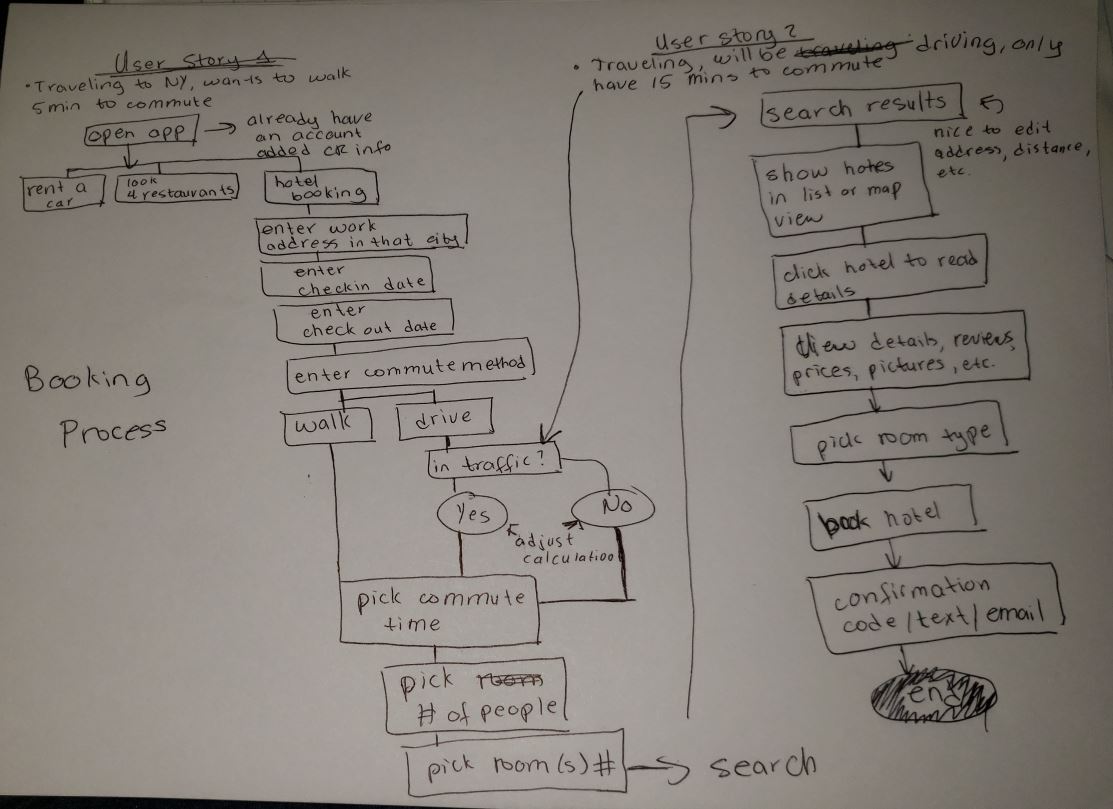 User Story 1
• Traveling to NY, wants to walk
5 min to commute
open app
already have
an account
added CR info
rent a
car
look
4 restaurants
hotel
booking
enter work
address in that city
enter
checkin date
enter
check out date
enter commute method
walk
drive
in traffic?
Yes
No
adjust
calculation
pick commute
time
pick room
# of people
pick room(s) #
search
Booking
Process
User story 2
• Traveling, will be traveling driving, only
have 15 mins to commute
search results
nice to edit
address, distance,
etc.
show hotes
in list or map
view
click hotel to read
details
View details, reviews,
prices, pictures, etc.
pick room type
book hotel
confirmation
code/text/email
end